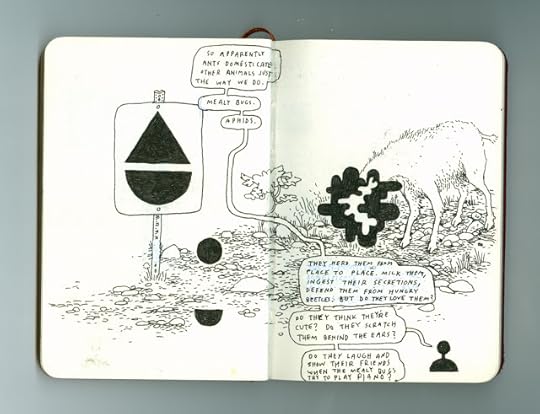 SO APPARENTLY
ANTS DOMESTICATE
OTHER ANIMALS JUST
THE WAY WE DO.
MEALY BUGS.
APHIDS.
THEY HERD THEM FROM
PLACE TO PLACE. MILK THEM,
INGEST THEIR SECRETIONS,
DEFEND THEM FROM HUNGRY
BEETLES; BUT DO THEY LOVE THEM?
DO THEY THINK THEY'RE
CUTE? DO THEY SCRATCH
THEM BEHIND THE EARS?
DO THEY LAUGH AND
SHOW THEIR FRIENDS
WHEN THE MEALY BUGS
TRY TO PLAY PIANO?